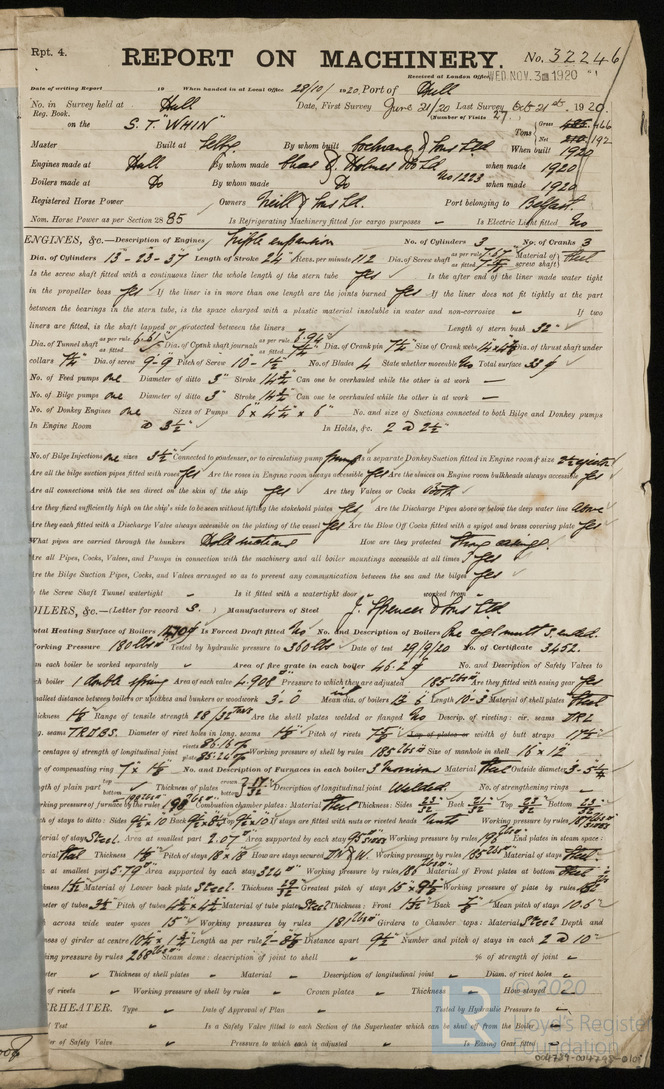 Rpt. 4.
REPORT ON MACHINERY.
No. 32246
Received at London Office WED. NOV. 3 1920
Date of writing Report 19 When handed in at Local Office 28/10/1920. Port of Hull
No. in Survey held at Hull Date, First Survey June 21/20 Last Survey Oct 21st 1920.
Reg. Book. (Number of Visits 27
on the S.T. "WHIN" Tons Gross 466
Net 192
Master Built at Selby By whom built Cochrane & Sons Ltd When built 1920
Engines made at Hull By whom made Chas D. Holmes & Co Ltd No 1223 when made 1920
Boilers made at Do By whom made Do when made 1920
Registered Horse Power Owners Neill & Sons Ld. Port belonging to Belfast.
Nom. Horse Power as per Section 28 85 Is Refrigerating Machinery fitted for cargo purposes - Is Electric Light fitted No
ENGINES, &c.—Description of Engines Triple expansion No. of Cylinders 3 No. of Cranks 3
Dia. of Cylinders 13-23-37 Length of Stroke 24 Revs. per minute 112 Dia. of Screw shaft as per rule as fitted Material of screw shaft Steel
Is the screw shaft fitted with a continuous liner the whole length of the stern tube Yes Is the after end of the liner made water tight
in the propeller boss Yes If the liner is in more than one length are the joints burned Yes If the liner does not fit tightly at the part
between the bearings in the stern tube, is the space charged with a plastic material insoluble in water and non-corrosive - If two
liners are fitted, is the shaft lapped or protected between the liners - Length of stern bush 32"
Dia. of Tunnel shaft as per rule 6.61 as fitted Dia. of Crank shaft journals as per rule 6.94 as fitted 7¼ Dia. of Crank pin 7¼ Size of Crank webs Dia. of thrust shaft under
collars 7¼ Dia. of screw 9-9 Pitch of Screw No. of Blades 4 State whether moveable No Total surface 33
No. of Feed pumps one Diameter of ditto 3" Stroke 14½ Can one be overhauled while the other is at work -
No. of Bilge pumps one Diameter of ditto 3" Stroke 14½ Can one be overhauled while the other is at work -
No. of Donkey Engines one Sizes of Pumps 6" x 4½ x 6" No. and size of Suctions connected to both Bilge and Donkey pumps
In Engine Room @ 3½" In Holds, &c. 2 @ 2½"
No. of Bilge Injections one sizes 3½" Connected to condenser, or to circulating pump pump Is a separate Donkey Suction fitted in Engine room & size 2½ ejector
Are all the bilge suction pipes fitted with roses Yes Are the roses in Engine room always accessible Yes Are the sluices on Engine room bulkheads always accessible Yes
Are all connections with the sea direct on the skin of the ship Yes Are they Valves or Cocks Both
Are they fixed sufficiently high on the ship's side to be seen without lifting the stokehold plates Yes Are the Discharge Pipes above or below the deep water line above
Are they each fitted with a Discharge Valve always accessible on the plating of the vessel Yes Are the Blow Off Cocks fitted with a spigot and brass covering plate Yes
What pipes are carried through the bunkers Hold suctions How are they protected Strong casings.
Are all Pipes, Cocks, Valves, and Pumps in connection with the machinery and all boiler mountings accessible at all times Yes
Are the Bilge Suction Pipes, Cocks, and Valves arranged so as to prevent any communication between the sea and the bilges Yes
Is the Screw Shaft Tunnel watertight - Is it fitted with a watertight door - worked from -
OILERS, &c.—(Letter for record S.) Manufacturers of Steel J. Spencer & Sons Ltd
otal Heating Surface of Boilers Is Forced Draft fitted No No. and Description of Boilers One cyl. mult. S. ended.
orking Pressure 180 lbs Tested by hydraulic pressure to 360 lbs Date of test 29/9/20 No. of Certificate 3452.
an each boiler be worked separately - Area of fire grate in each boiler 46.2 No. and Description of Safety Valves to
ch boiler 1 double spring Area of each valve 4.908 Pressure to which they are adjusted 185 lbs Are they fitted with easing gear Yes
mallest distance between boilers or uptakes and bunkers or woodwork 3'-0 Mean dia. of boilers 13'6 Length 10-3 Material of shell plates Steel
ickness Range of tensile strength 28/32 Tons Are the shell plates welded or flanged No Descrip. of riveting: cir. seams DRL
g. seams TRDBS. Diameter of rivet holes in long. seams Pitch of rivets Lap of plates or width of butt straps
centages of strength of longitudinal joint rivets 86.16 plate 85.24 Working pressure of shell by rules 185 lbs Size of manhole in shell 16" x 12"
e of compensating ring No. and Description of Furnaces in each boiler 3 Morrison Material Steel Outside diameter
gth of plain part top bottom Thickness of plates crown bottom Description of longitudinal joint Welded. No. of strengthening rings -
orking pressure of furnace by the rules 198 lbs Combustion chamber plates: Material Steel Thickness: Sides Back Top Bottom
ch of stays to ditto: Sides Back Top If stays are fitted with nuts or riveted heads nuts Working pressure by rules
aterial of stay Steel. Area at smallest part 2.07 Area supported by each stay Working pressure by rules End plates in steam space:
erial Steel Thickness Pitch of stays 18 x 18 How are stays secured DN & W. Working pressure by rules 185 lbs Material of stays Steel
a at smallest part 5.79 Area supported by each stay 324 Working pressure by rules 186 Material of Front plates at bottom Steel
ckness Material of Lower back plate Steel. Thickness Greatest pitch of stays Working pressure of plate by rules
eter of tubes 3½ Pitch of tubes Material of tube plates Steel Thickness: Front Back Mean pitch of stays 10.6
h across wide water spaces 15" Working pressures by rules 181 lbs Girders to Chamber tops: Material Steel Depth and
ness of girder at centre Length as per rule Distance apart 9½ Number and pitch of stays in each 2 @ 10"
king pressure by rules 268 lbs Steam dome: description of joint to shell - % of strength of joint -
eter - Thickness of shell plates - Material - Description of longitudinal joint - Diam. of rivet holes -
of rivets - Working pressure of shell by rules - Crown plates - Thickness - How stayed -
ERHEATER. Type - Date of Approval of Plan - Tested by Hydraulic Pressure to -
f Test - Is a Safety Valve fitted to each Section of the Superheater which can be shut off from the Boiler
ter of Safety Valve - Pressure to which each is adjusted - Is Easing Gear fitted -
© 2020
LR
Lloyd's Register
Foundation
004789-004798-0108